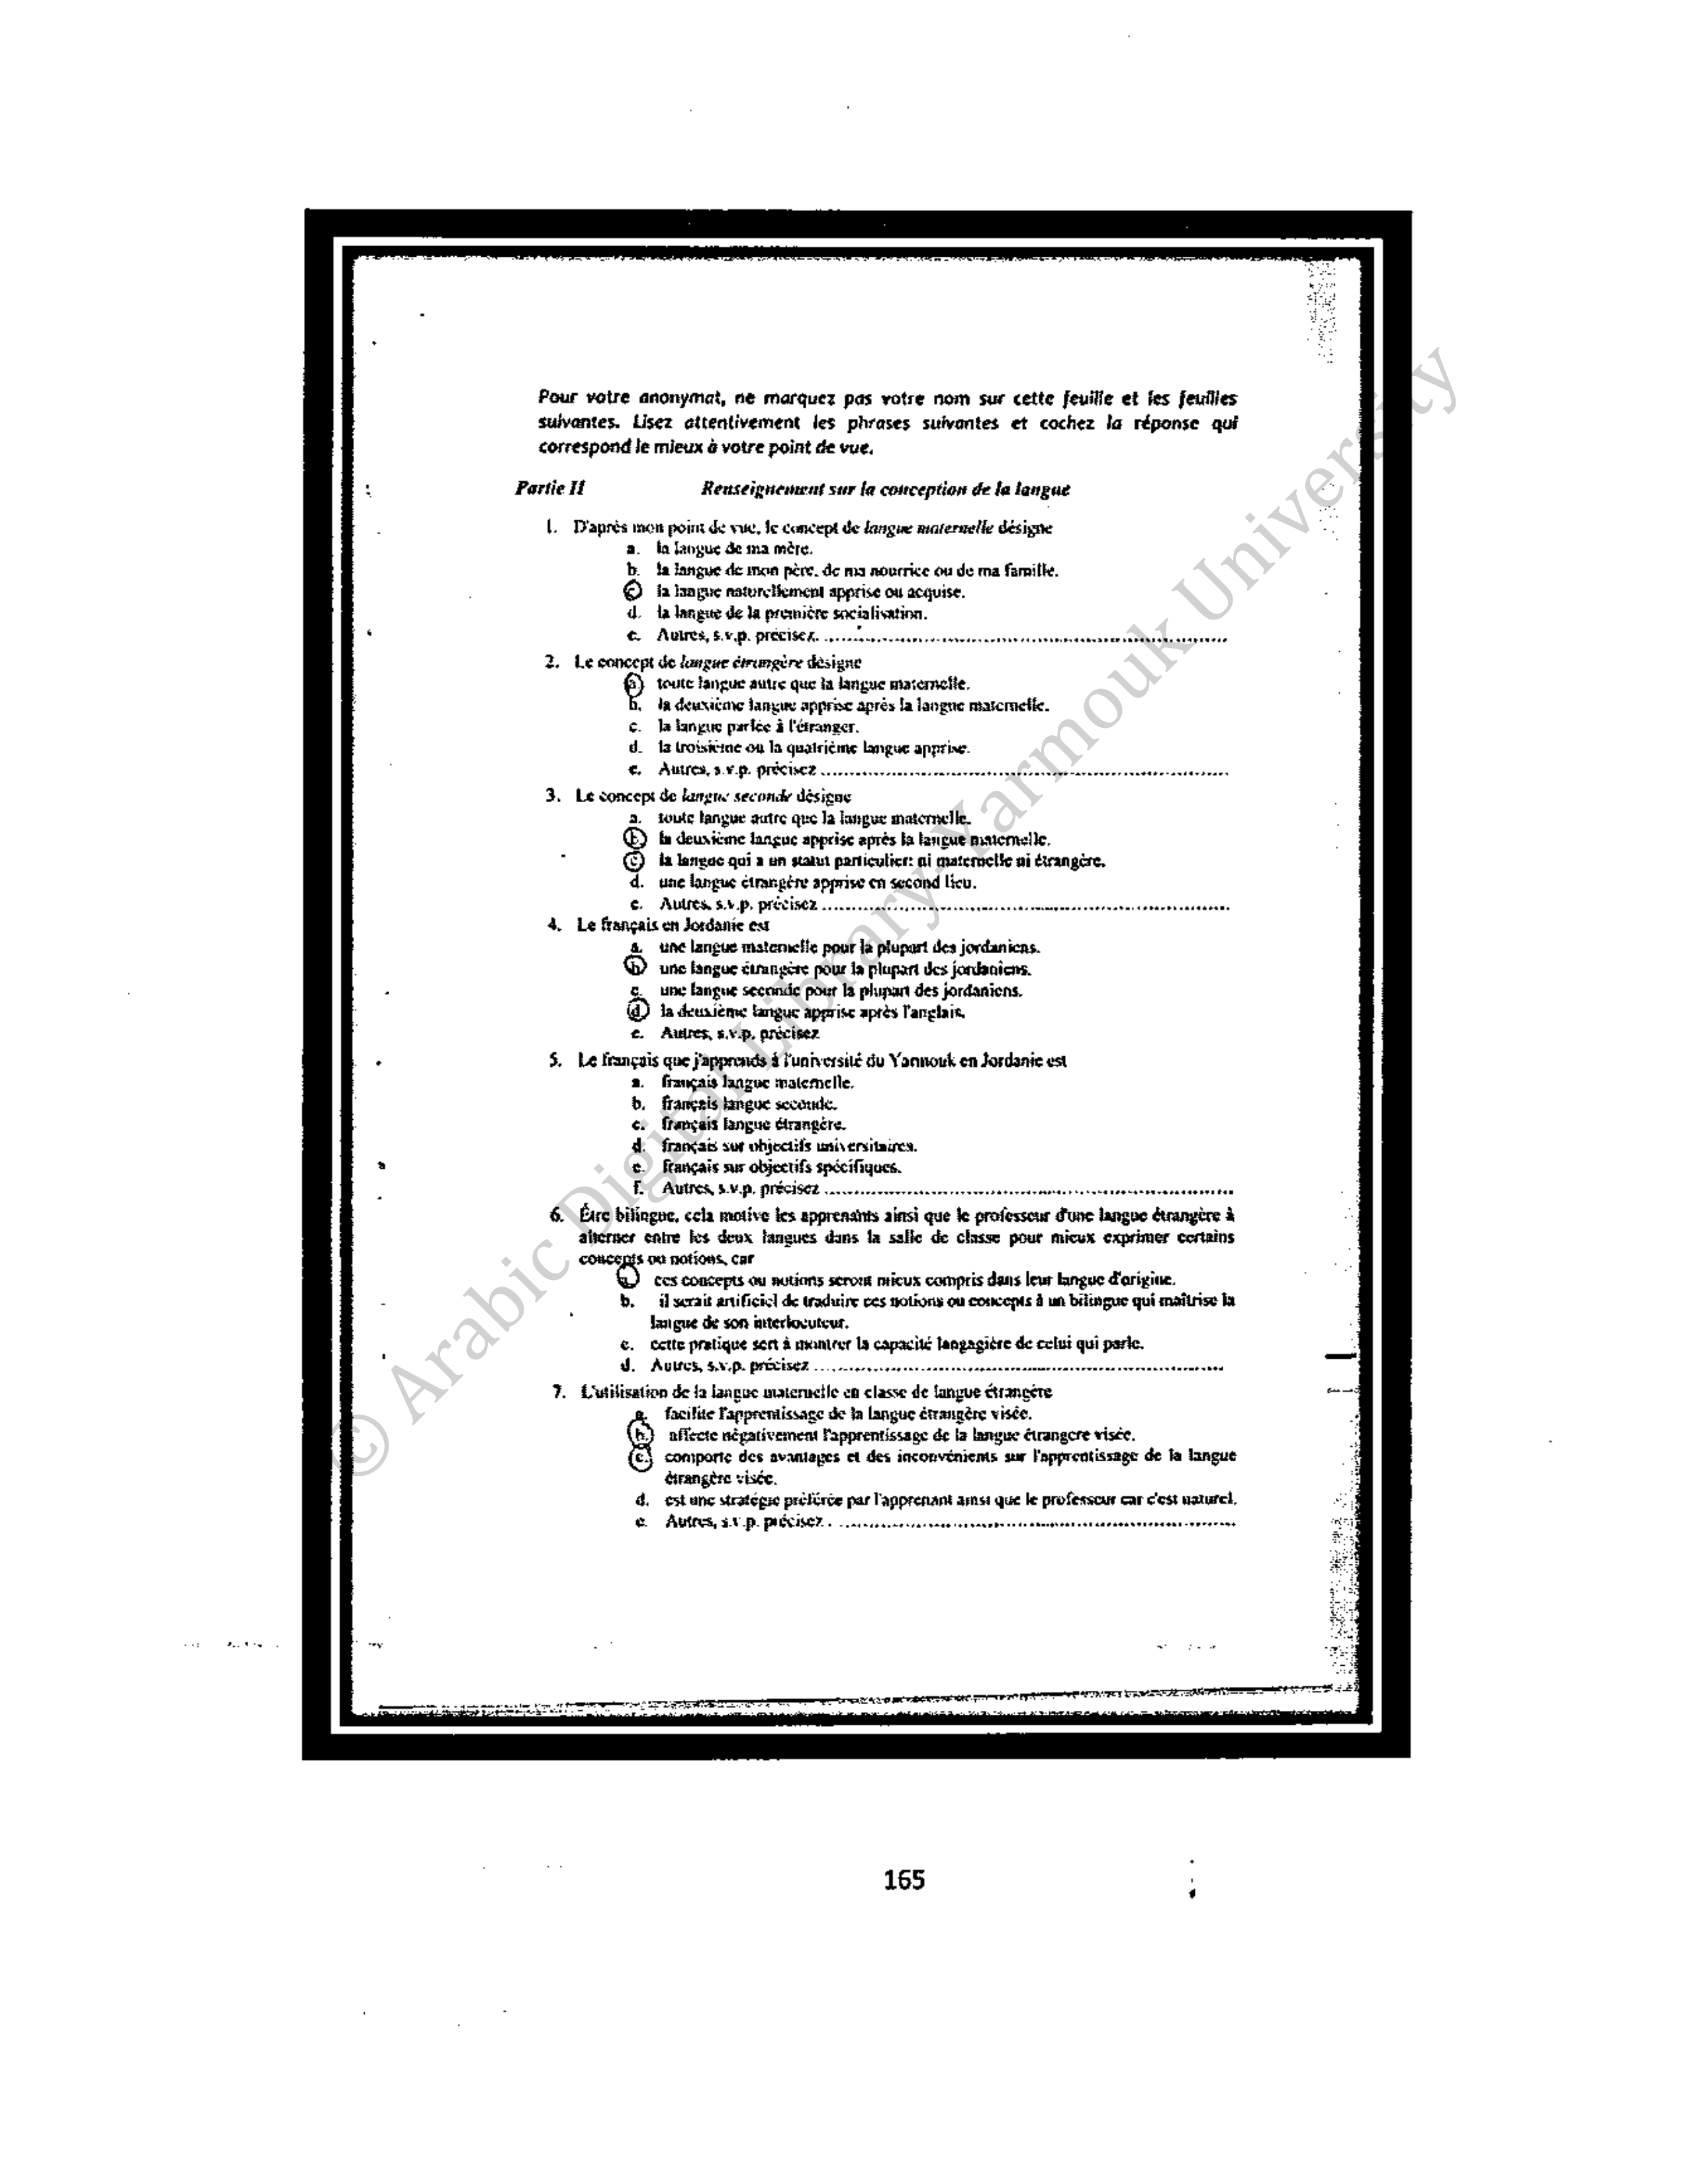 Pour votre anonymat, ne marquez pas votre nom sur cette feuille et les feuilles
suivantes. Lisez attentivement les phrases suivantes et cochez la réponse qui
correspond le mieux à votre point de vue.
Partie II Renseignement sur la conception de la langue
1. D'après mon point de vue, le concept de langue maternelle désigne
a. la langue de ma mère.
b. la langue de mon père, de ma nourrice ou de ma famille.
c. la langue naturellement apprise ou acquise.
d. la langue de la première socialisation.
e. Autres, s.v.p. précisez. ........................................
2. Le concept de langue étrangère désigne
a. toute langue autre que la langue maternelle.
b. la deuxième langue apprise après la langue maternelle.
c. la langue parlée à l'étranger.
d. la troisième ou la quatrième langue apprise.
e. Autres, s.v.p. précisez ........................................
3. Le concept de langue seconde désigne
a. toute langue autre que la langue maternelle.
b. la deuxième langue apprise après la langue maternelle.
c. la langue qui a un statut particulier: ni maternelle ni étrangère.
d. une langue étrangère apprise en second lieu.
e. Autres, s.v.p. précisez ........................................
4. Le français en Jordanie est
a. une langue maternelle pour la plupart des jordaniens.
b. une langue étrangère pour la plupart des jordaniens.
c. une langue seconde pour la plupart des jordaniens.
d. la deuxième langue apprise après l'anglais.
e. Autres, s.v.p. précisez
5. Le français que j'apprends à l'université du Yarmouk en Jordanie est
a. français langue maternelle.
b. français langue seconde.
c. français langue étrangère.
d. français sur objectifs universitaires.
e. français sur objectifs spécifiques.
f. Autres, s.v.p. précisez ........................................
6. Être bilingue, cela motive les apprenants ainsi que le professeur d'une langue étrangère à
alterner entre les deux langues dans la salle de classe pour mieux exprimer certains
concepts ou notions, car
a. ces concepts ou notions seront mieux compris dans leur langue d'origine.
b. il serait artificiel de traduire ces notions ou concepts à un bilingue qui maîtrise la
langue de son interlocuteur.
c. cette pratique sert à montrer la capacité langagière de celui qui parle.
d. Autres, s.v.p. précisez ........................................
7. L'utilisation de la langue maternelle en classe de langue étrangère
a. facilite l'apprentissage de la langue étrangère visée.
b. affecte négativement l'apprentissage de la langue étrangère visée.
c. comporte des avantages et des inconvénients sur l'apprentissage de la langue
étrangère visée.
d. est une stratégie préférée par l'apprenant ainsi que le professeur car c'est naturel.
e. Autres, s.v.p. précisez. ........................................
165
© Arabic Digital Library-Yarmouk University